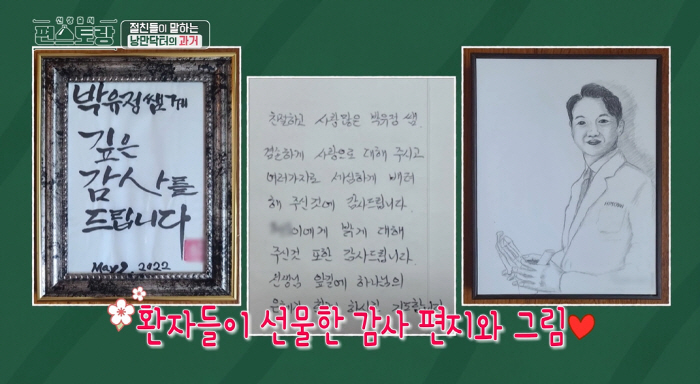 신상출시
편스토랑
절친들이 말하는
낭만닥터의 과거
박유정 쌤께
깊은
감사를
드립니다
May 2, 2022
친절하고 사랑 많은 박유정 쌤.
겸손하게 사랑으로 대해 주시고
여러가지로 세심하게 배려
해 주신것에 감사드립니다.
이에게 밝게 대해
주신것 또한 감사드립니다.
선생님 앞길에 하나님의
환자들이 선물한 감사 편지와 그림